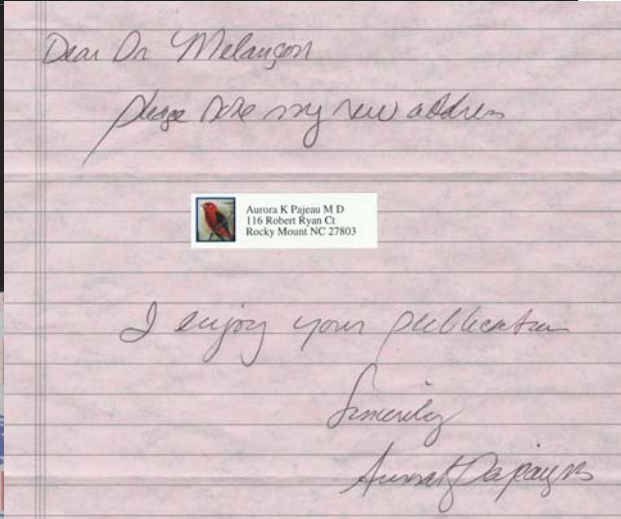 Dear Dr Melançon
please note my new address
Aurora K Pajeau M D
116 Robert Ryan Ct
Rocky Mount NC 27803
I enjoy your publication
Sincerely
Aurora K Pajeau MD